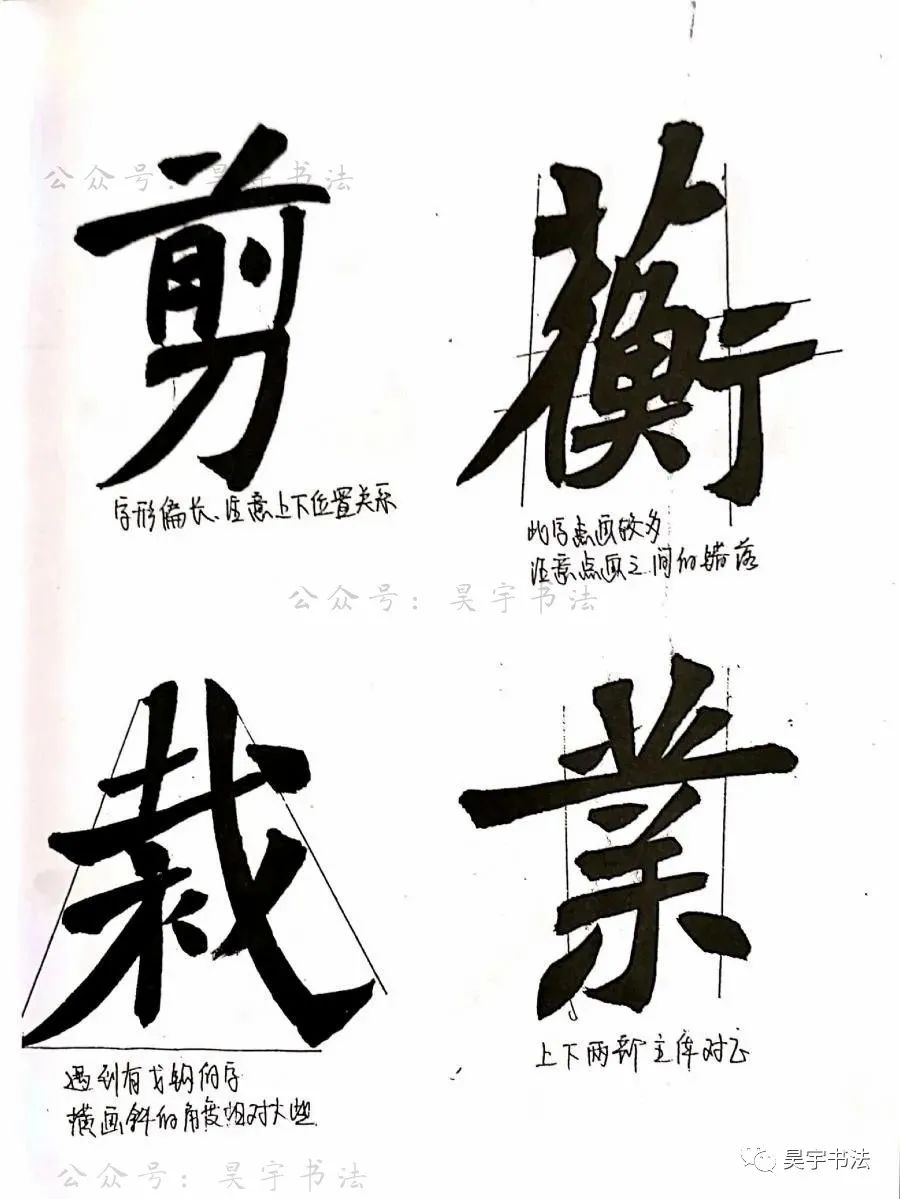 公众号：昊宇书法
剪
蘅
字形偏长、注意上下位置关系
此字点画较多
注意点画之间的错落
公众号：昊宇书法
裁
業
上下两部主体对正
遇到有戈钩的字
横画斜的角度相对大些
公众号：昊宇书法
昊宇书法